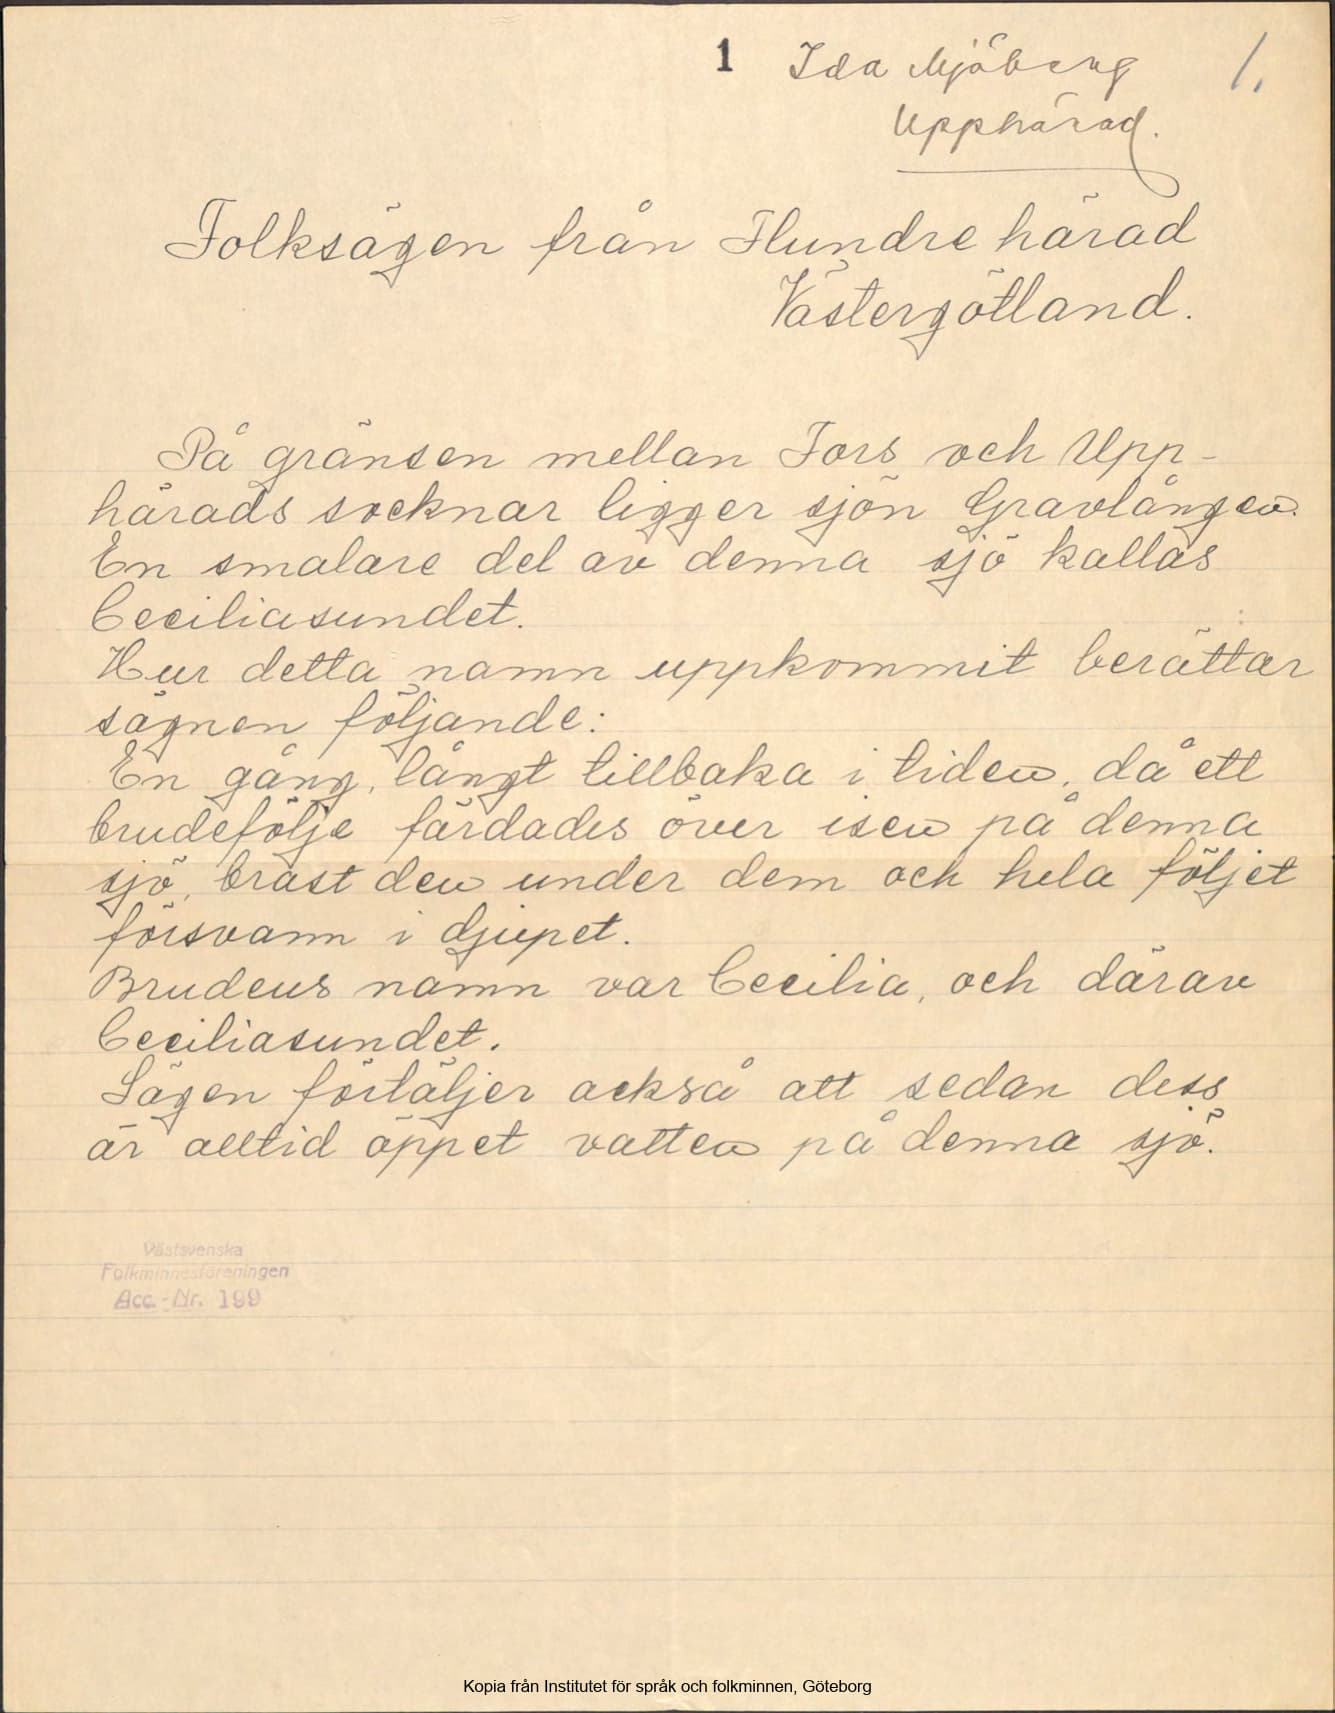 1 Ida Mjöberg 1.
Upphärad.
Folksägen från Flundre härad
Västergötland.
På gränsen mellan Fors och Upp-
härads socknar ligger sjön Gravlången.
En smalare del av denna sjö kallas
Ceciliasundet.
Hur detta namn uppkommit berättar
sägnen följande:
En gång, långt tillbaka i tiden, då ett
brudefölje färdades över isen på denna
sjö, brast den under dem och hela följet
försvann i djupet.
Brudens namn var Cecilia, och därav
Ceciliasundet.
Sägen förtäljer också att sedan dess
är alltid öppet vatten på denna sjö.
Västsvenska
Folkminnesföreningen
Acc.-Nr. 199
Kopia från Institutet för språk och folkminnen, Göteborg